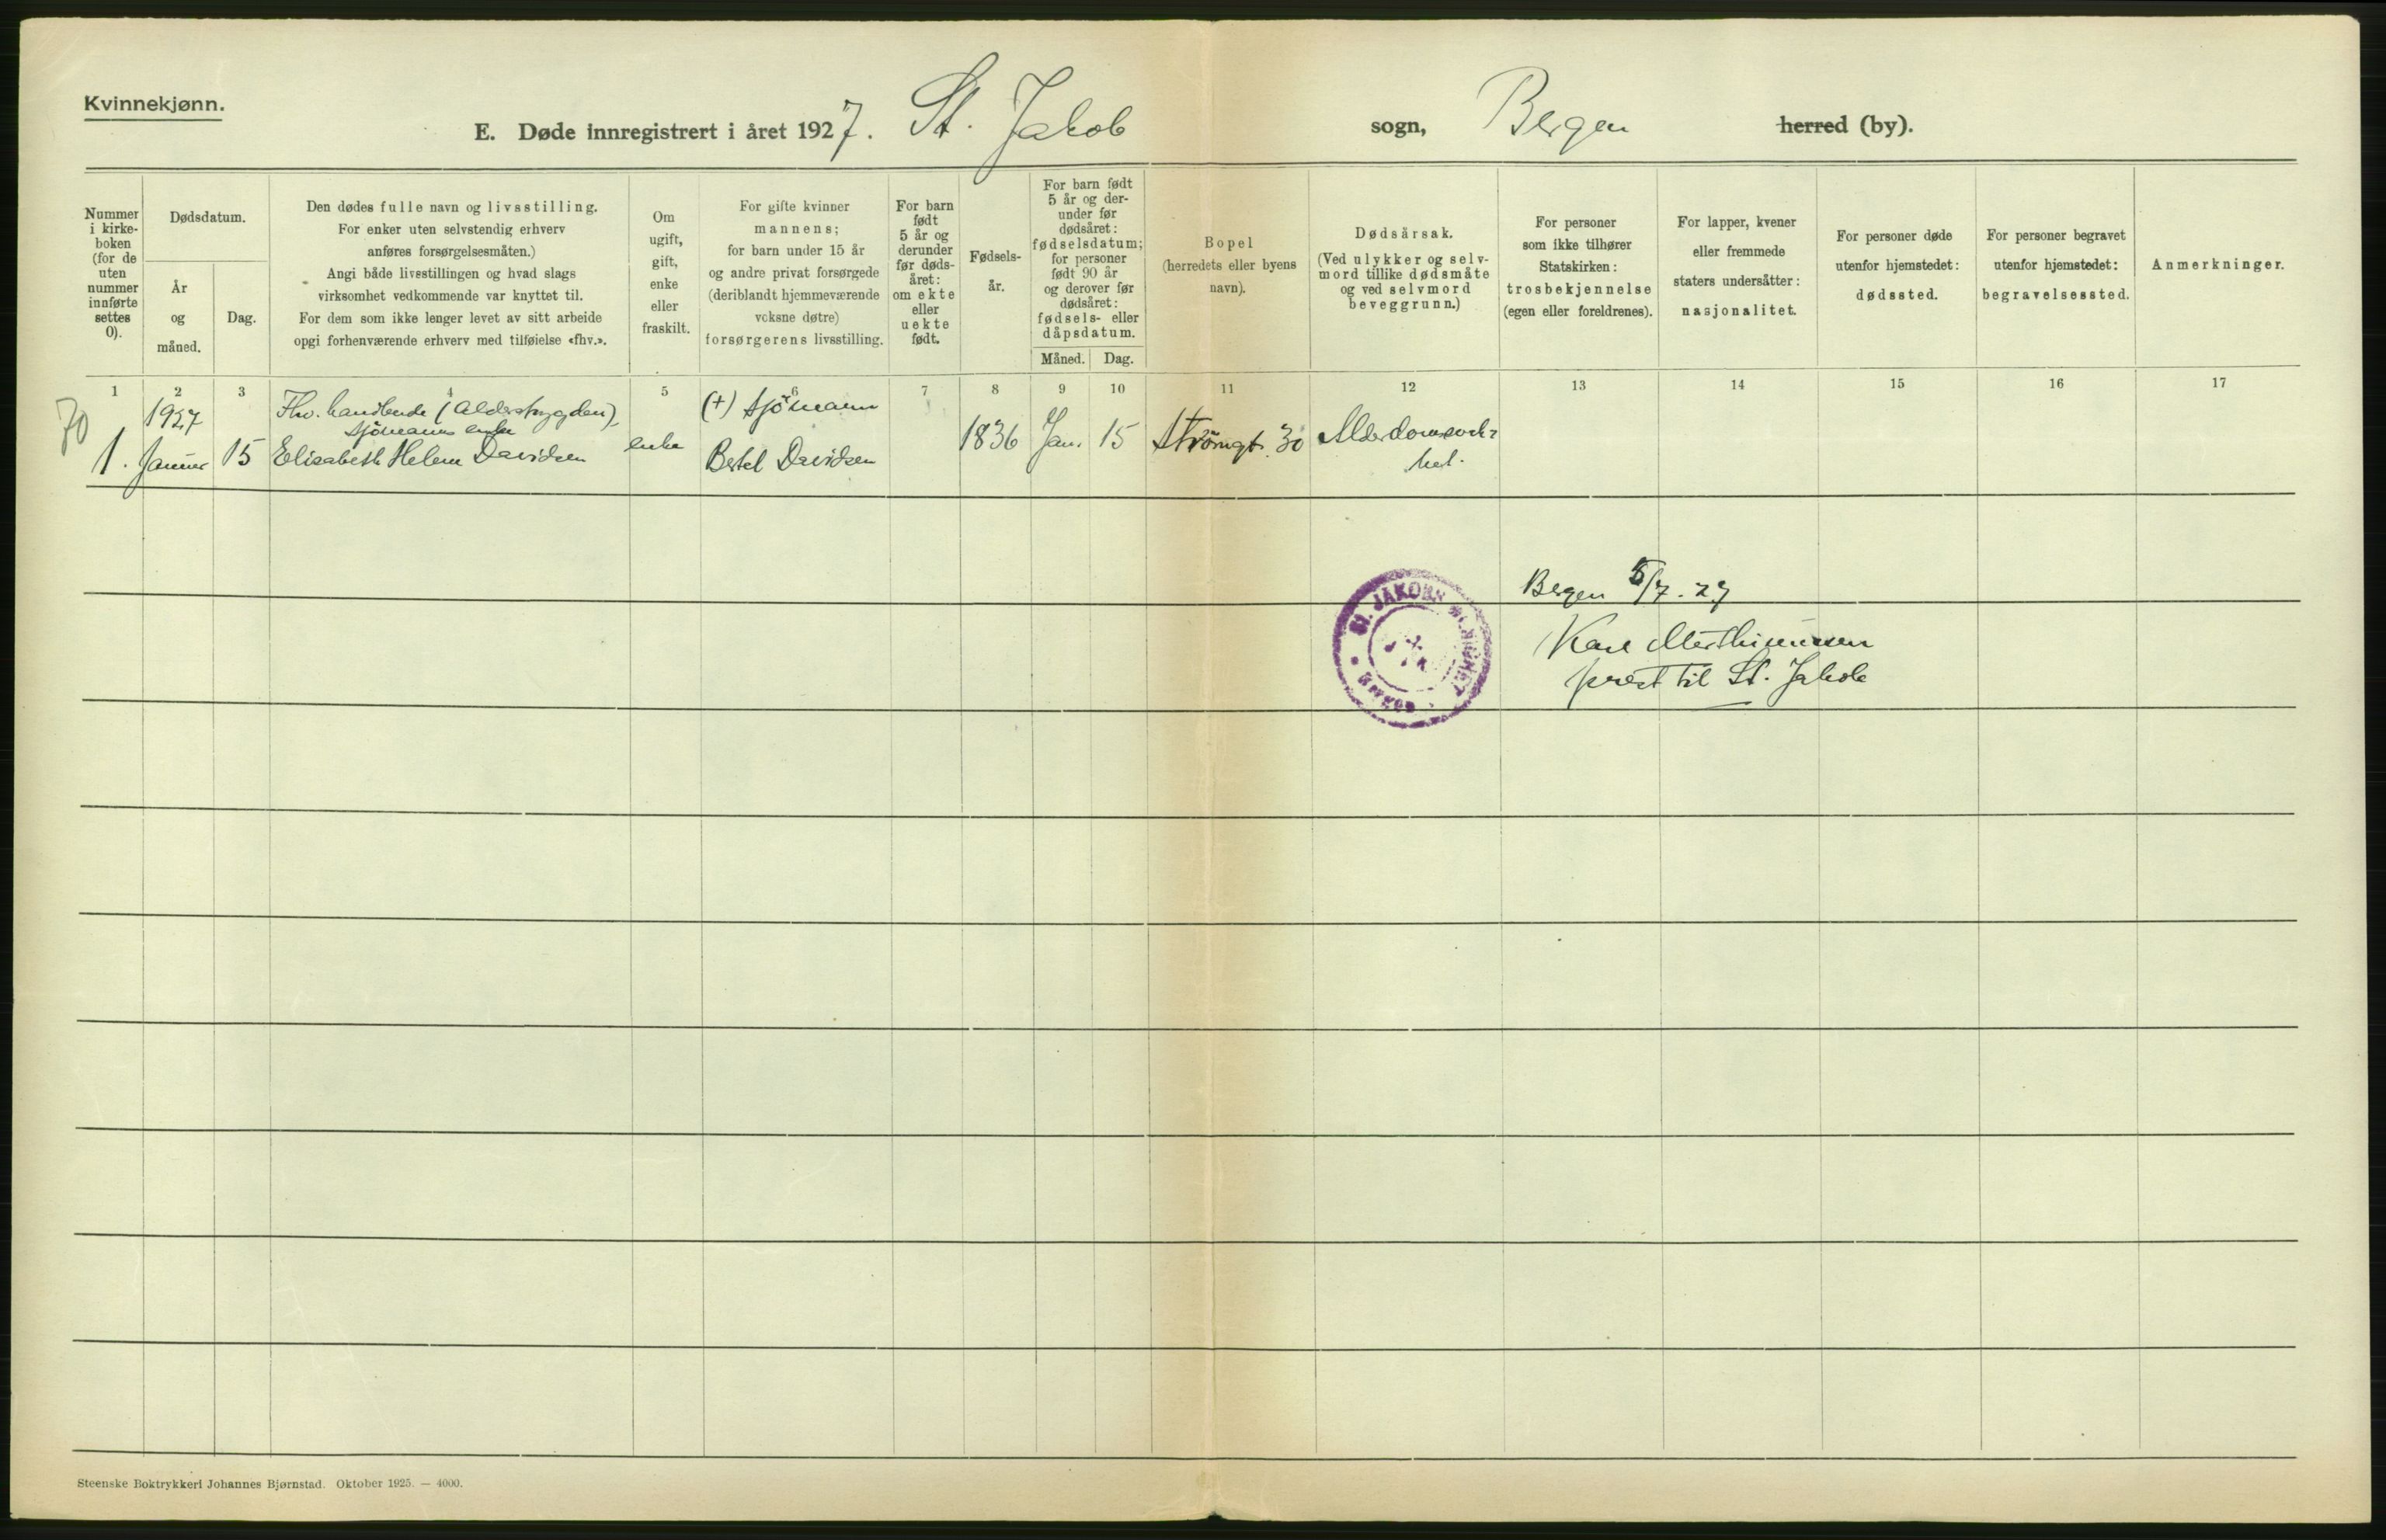 Kvinnekjønn.
E. Døde innregistrert i året 1927. St. Jakob sogn, Bergen herred (by).
Nummer
i kirke-
boken
(for de
uten
nummer
innførte
settes
0).
Dødsdatum.
År
og
måned.
Dag.
Den dødes fulle navn og livsstilling.
For enker uten selvstendig erhverv
anføres forsørgelsesmåten.)
Angi både livsstillingen og hvad slags
virksomhet vedkommende var knyttet til.
For dem som ikke lenger levet av sitt arbeide
opgi forhenværende erhverv med tilføielse «fhv.».
Om
ugift,
gift,
enke
eller
fraskilt.
For gifte kvinner
mannens;
for barn under 15 år
og andre privat forsørgede
(deriblandt hjemmeværende
voksne døtre)
forsørgerens livsstilling.
For barn
født
5 år og
derunder
før døds-
året:
om ekte
eller
uekte
født.
Fødsels-
år.
For barn født
5 år og der-
under før
dødsåret:
fødselsdatum;
for personer
født 90 år
og derover før
dødsåret:
fødsels- eller
dåpsdatum.
Måned. Dag.
Bopel
(herredets eller byens
navn).
Dødsårsak.
(Ved ulykker og selv-
mord tillike dødsmåte
og ved selvmord
beveggrunn.)
For personer
som ikke tilhører
Statskirken:
trosbekjennelse
(egen eller foreldrenes).
For lapper, kvener
eller fremmede
staters undersåtter:
nasjonalitet.
For personer døde
utenfor hjemstedet:
dødssted.
For personer begravet
utenfor hjemstedet:
begravelsessted.
Anmerkninger.
1 2 3 4 5 6 7 8 9 10 11 12 13 14 15 16 17
70
1.
1927
Januar
15
Fhv. handlende (Alderstrygden)
sjömanns enke
Elisabeth Helene Davidsen
enke
(+) sjömann
Bertel Davidsen
1836
Jan.
15
Strömgt. 30
Bergen 5/7. 27
Karl
prest til St. Jakob
St. JAKOBS
BERGEN
Steenske Boktrykkeri Johannes Bjørnstad. Oktober 1925. — 4000.